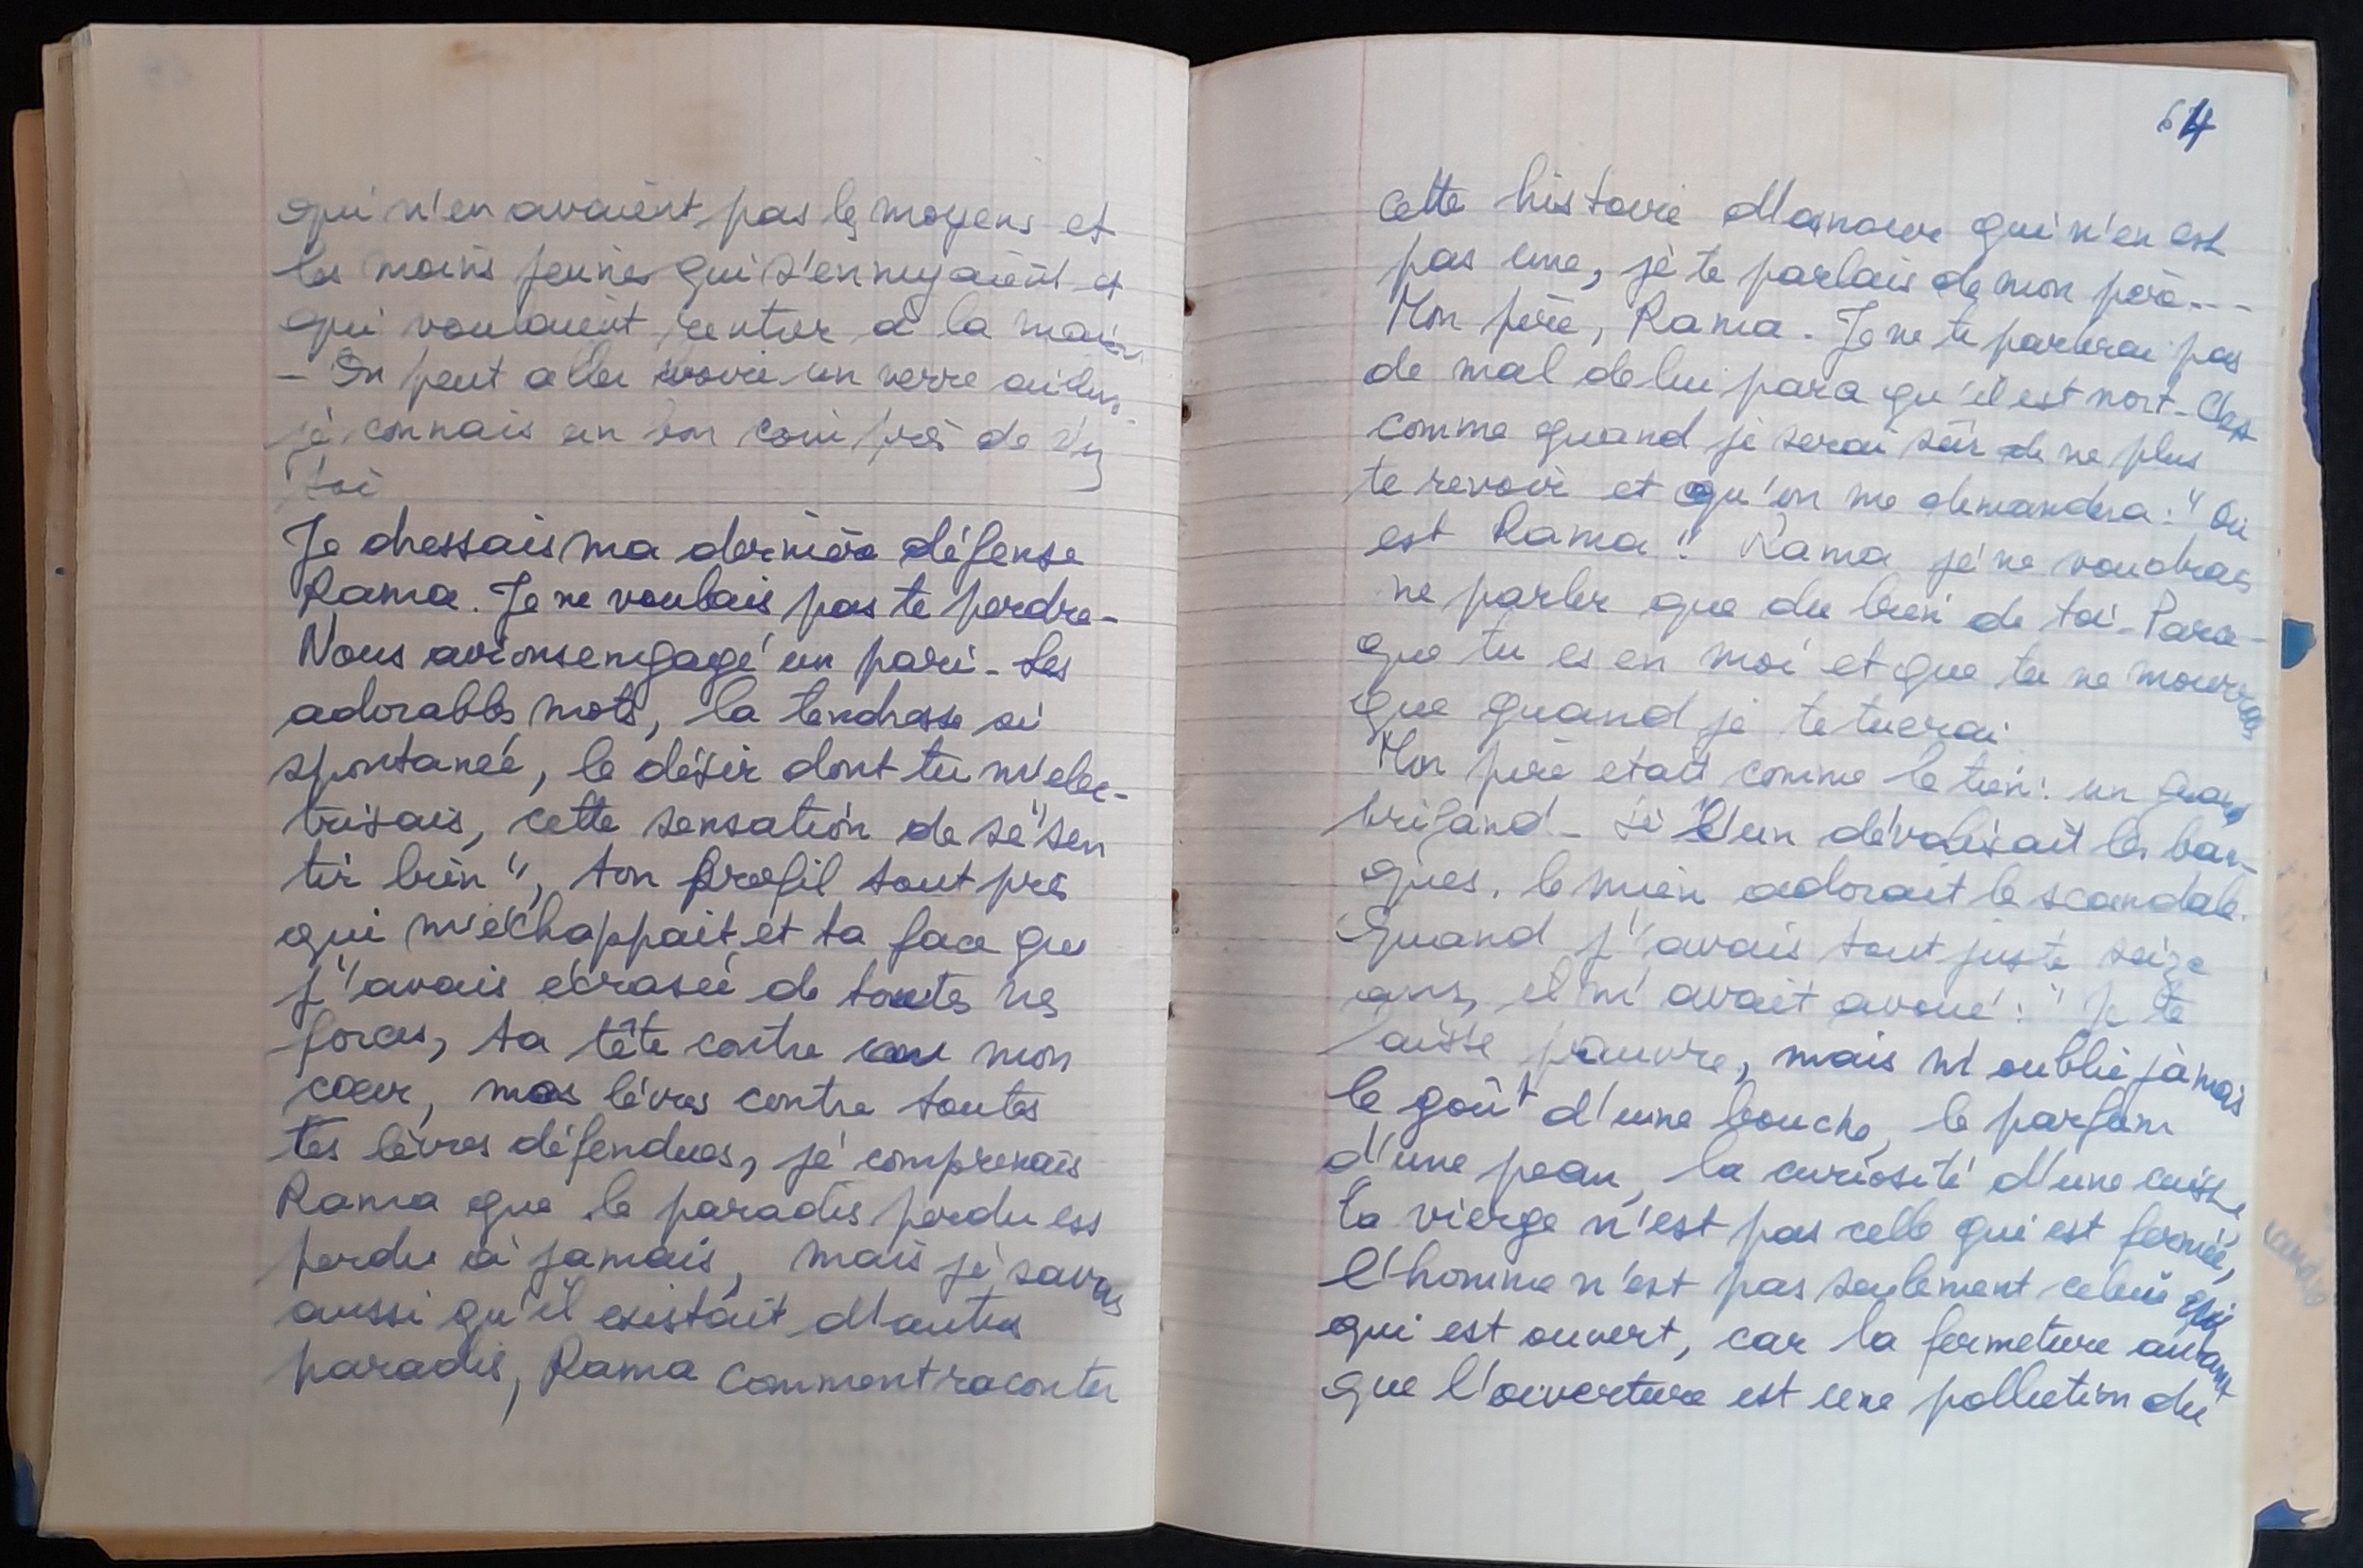 qui n'en avaient pas les moyens et
les moins jeunes qui s'ennuyaient et
qui voulaient rentrer à la maison.
- On peut aller boire un verre ailleurs,
je connais un bon coin près de
toi
Je dressais ma dernière défense
Rama. Je ne voulais pas te perdre -
Nous avions engagé un pari - Les
adorables mots, la tendresse si
spontanée, le désir dont tu m'élec-
trisais, cette sensation de se "sen
tir bien", ton profil tout près
qui m'échappait, et ta face que
j'avais écrasée de toutes mes
forces, ta tête contre mon
cœur, mes lèvres contre toutes
tes lèvres défendues, je comprenais
Rama que le paradis perdu est
perdu à jamais, mais je savais
aussi qu'il existait d'autres
paradis, Rama comment raconter
64
cette histoire d'amour qui n'en est
pas une, je te parlais de mon père - - -
Mon père, Rama. Je ne te parlerai pas
de mal de lui parce qu'il est mort - C'est
comme quand je serai sûr de ne plus
te revoir et qu'on me demandera : "Où
est Rama". Rama je ne voudrais
ne parler que du bien de toi - Parce -
que tu es en moi et que tu ne mourras
que quand je te tuerai
Mon père était comme le tien : un grand
brigand - Si l'un dévalisait les ban-
ques, le mien adorait le scandale.
Quand j'avais tout juste seize
ans, il m'avait avoué : "Je te
laisse pauvre, mais n'oublie jamais
le goût d'une bouche, le parfum
d'une peau, la curiosité d'une cuisse,
la vierge n'est pas celle qui est fermée,
l'homme n'est pas seulement celui qui
qui est ouvert, car la fermeture autant
que l'ouverture est une pollution du